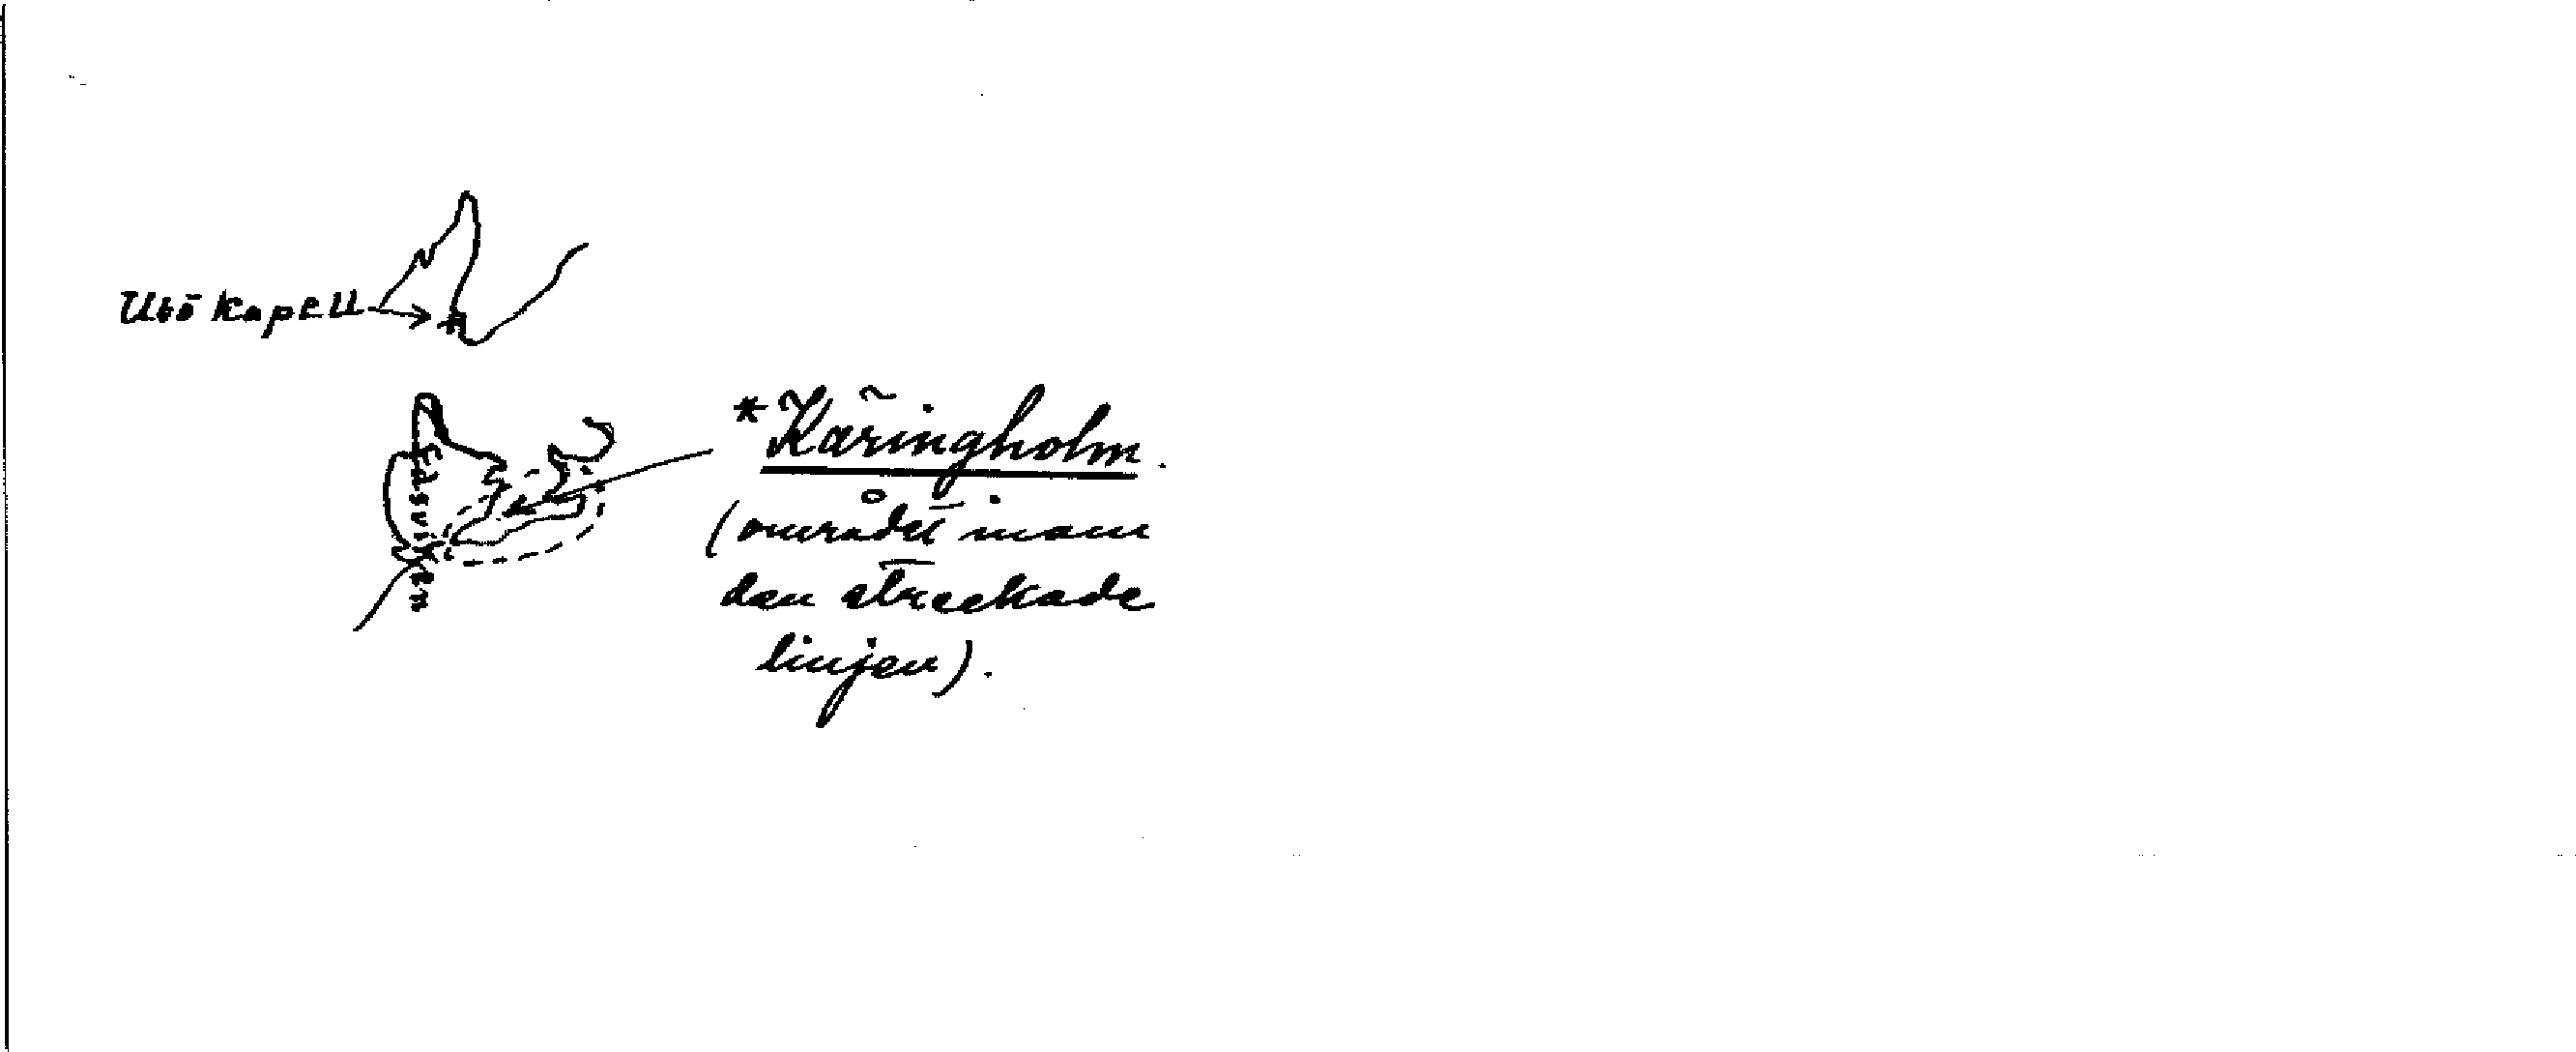 Utö kapell
*Käringholm.
(området inom
den streckade
linjen).
Edsviken